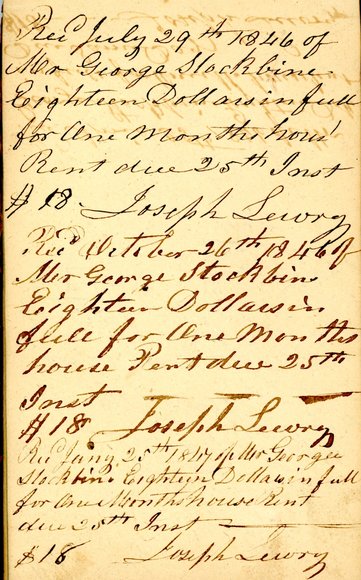 Recd July 29th 1846 of
Mr George Stockbine
Eighteen Dollars in full
for One Months hous
Rent due 25th Inst
$18. Joseph Lewry
Recd October 26th 1846 of
Mr George Stockbin
Eighteen Dollars in
full for One Months
house Rent due 25th
Inst
$18 Joseph Lewry
Recd Jany 25th 1847 of Mr George
Stockbine Eighteen Dollars in full
for One Months house Rent
due 25th Inst
$18 Joseph Lewry